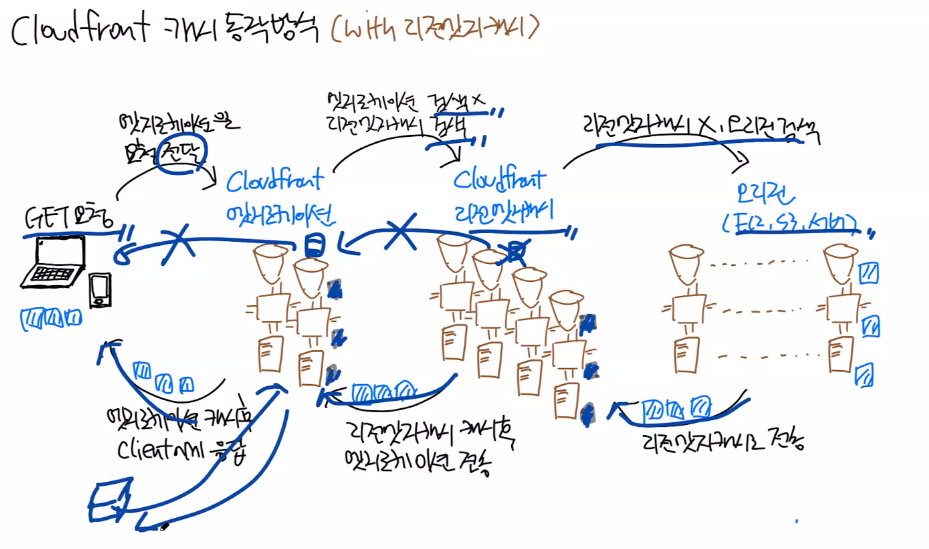 Cloudfront 캐시 동작방식 (with 리전엣지캐시)
엣지로케이션으로
요청 전달
엣지로케이션 검색 X
리전엣지캐시 검색
리전엣지캐시 X, 오리진 검색
GET 요청
Cloudfront
엣지로케이션
Cloudfront
리전엣지캐시
오리진
(EC2, S3, 서버)
엣지로케이션 캐시 후
Client에 응답
리전엣지캐시 캐시 후
엣지로케이션 전송
리전엣지캐시로 전송